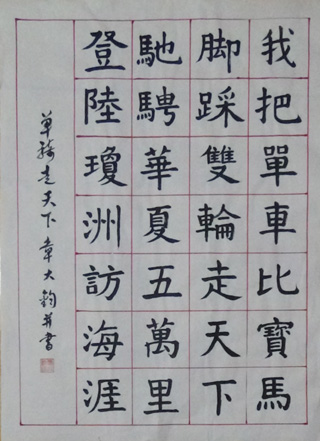 我把單車比寶馬
脚踩雙輪走天下
馳騁華夏五萬里
登陸瓊洲訪海涯
單騎走天下 章大鈞并書